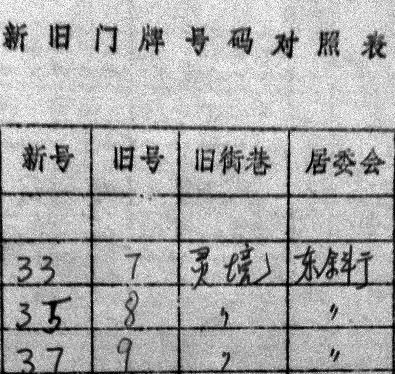 新旧门牌号码对照表
新号 旧号 旧街巷 居委会
33 7 灵境 东斜行
35 8 〃 〃
37 9 〃 〃